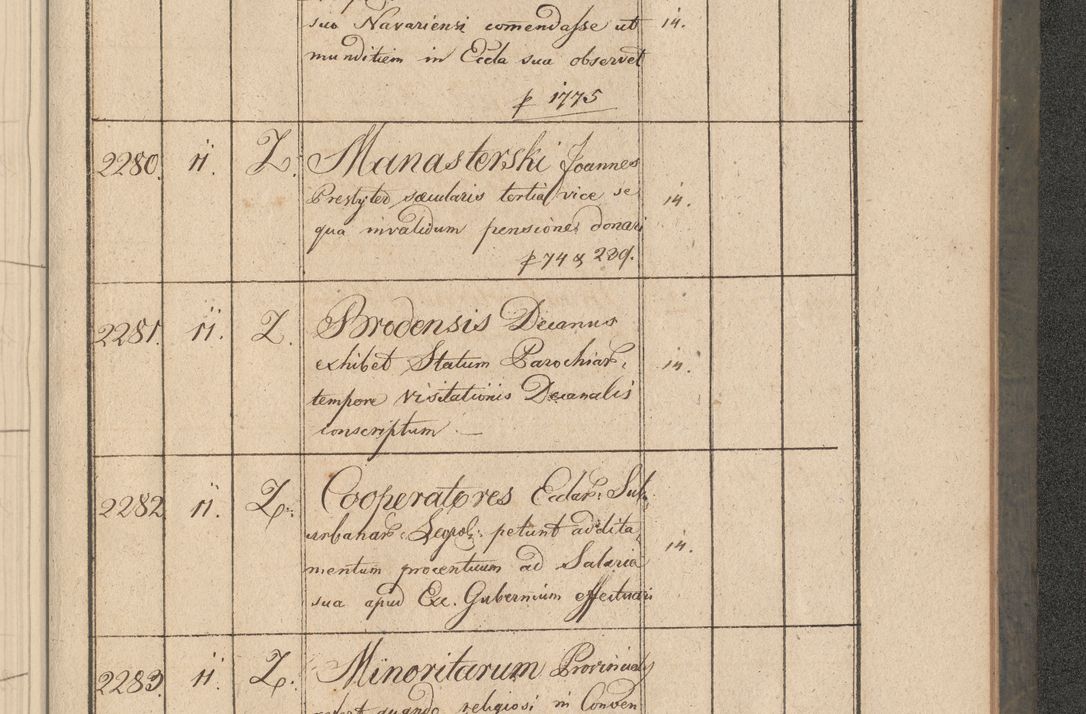 suo Navariensi comendasse ut 14.
munditiem in Eccla sua observet
p 1775
2280. 11. Z. Manasterski Joannes
Presbyter saecularis tertia vice se 14.
qua invalidum pensione donari
p 74 & 239.
2281. 11. Z. Brodensis Decanus
exhibet Statum Parochiar: 14.
tempore visitationis Decanalis
conscriptum —
2282 11. Z. Cooperatores Eclar: Sub
urbanar: Leopol: petunt addita
mentum procentuum ad Salaria 14.
sua apud Exc. Gubernium effectuari
2283. 11. Z. Minoritarum Provincials
quando religiosi in Conven